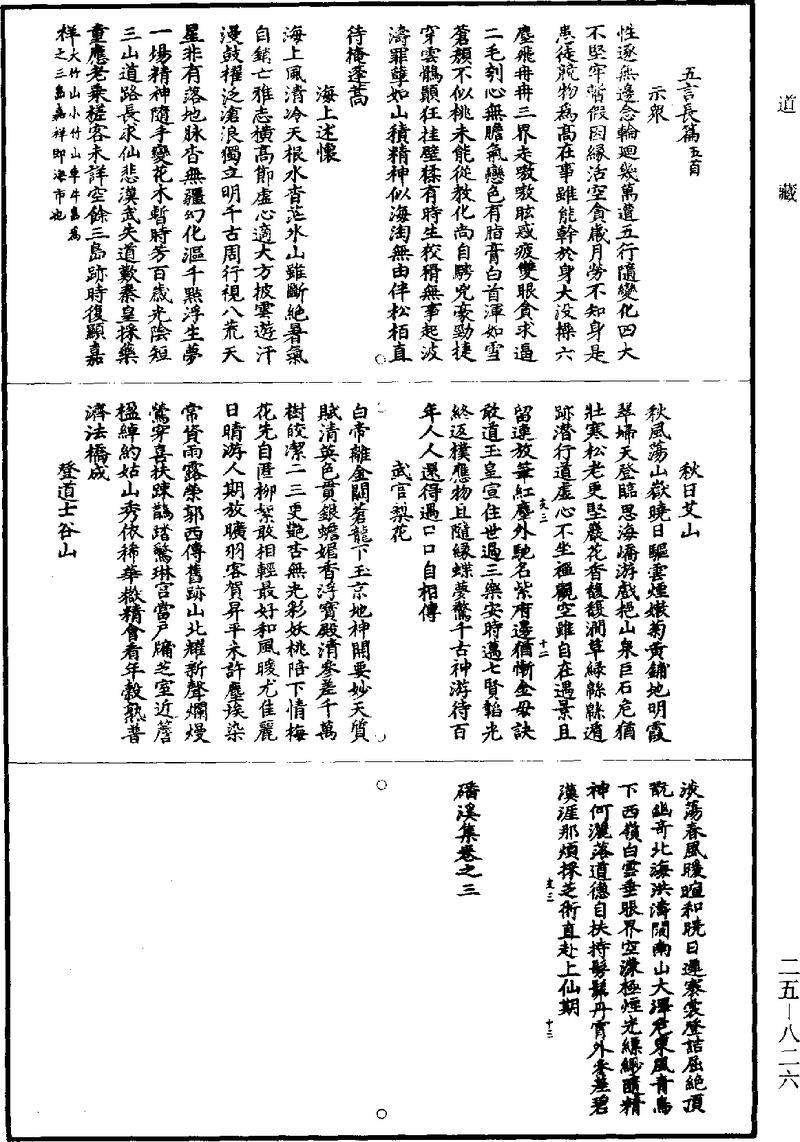 道藏
五言長篇五首
示眾
性逐無邊念輪迴幾萬遭五行隨變化四大
不堅牢暫假因緣活空貪歲月勞不知身是
患徒脫物為高在事雖能幹於身大沒操六
塵飛冉冉三界走嗷嗷眩惑疲雙眼貪求逼
二毛剖心無膽氣戀色有脂膏白首渾如雪
蒼顏不似桃未能從教化尚自騁兇豪勁捷
穿雲鶻顛狂挂壁猱有時生狡猾無事起波
濤罪孽如山積精神似海淘無由伴松栢直
待掩蓬蒿
海上述懷
海上風清冷天根水杳茫氷山雖斷絕暑氣
自銷亡雅志橫高節虛心適大方披雲遊汗
漫鼓櫂泛滄浪獨立明千古周行視八荒天
星非有落地脉杳無疆幻化漚千點浮生夢
一場精神隨手變花木暫時芳百歲光陰短
三山道路長求仙悲漢武失道歎秦皇採藥
童應老乘槎客未詳空餘三島跡時復顯嘉
祥大竹山小竹山車牛島為之三島嘉祥即海市也
秋日艾山
秋風蕩山嶽曉日驅雲煙嫩菊黃鋪地明霞
翠埽天登臨思海嶠游戲挹山泉巨石危猶
壯寒松老更堅巖花香馥馥澗草綠緜緜遁
跡潛行道虛心不坐禪觀空雖自在遇景且
留連放筆紅塵外馳名紫府邊猶慚金母訣
敢道玉皇宣住世過三樂安時邁七賢韜光
終返樸應物且隨緣蝶夢驚千古神游待百
年人人還得過口口自相傳
武官梨花
白帝離金闕蒼龍下玉京地神開要妙天質
賦清英色貫銀蟾媚香浮寶殿清參差千萬
樹皎潔二三更艷杏無光彩妖桃陪下情梅
花先自匿柳絮敢相輕最好和風暖尤佳麗
日晴游人期放曠羽客賀昇平未許塵埃染
常資雨露榮郭西傳舊跡山北耀新聲爛熳
鶯穿喜扶踈鵲踏驚琳宮當戶牖芝室近簷
楹綽約姑山秀依稀華嶽精會看年穀熟普
濟法橋成
登道士谷山
淡蕩春風暖暄和曉日遲褰裳登詰屈絕頂
翫幽奇北海洪濤闊南山大澤危東風青鳥
下西嶺白雲垂眼界空濛極煙光縹緲隨精
神何灑落道德自扶持髣髴丹霄外參差碧
漢涯那煩採芝朮直赴上仙期
磻溪集卷之三
友三
十二
友三
十三
二五—八二六